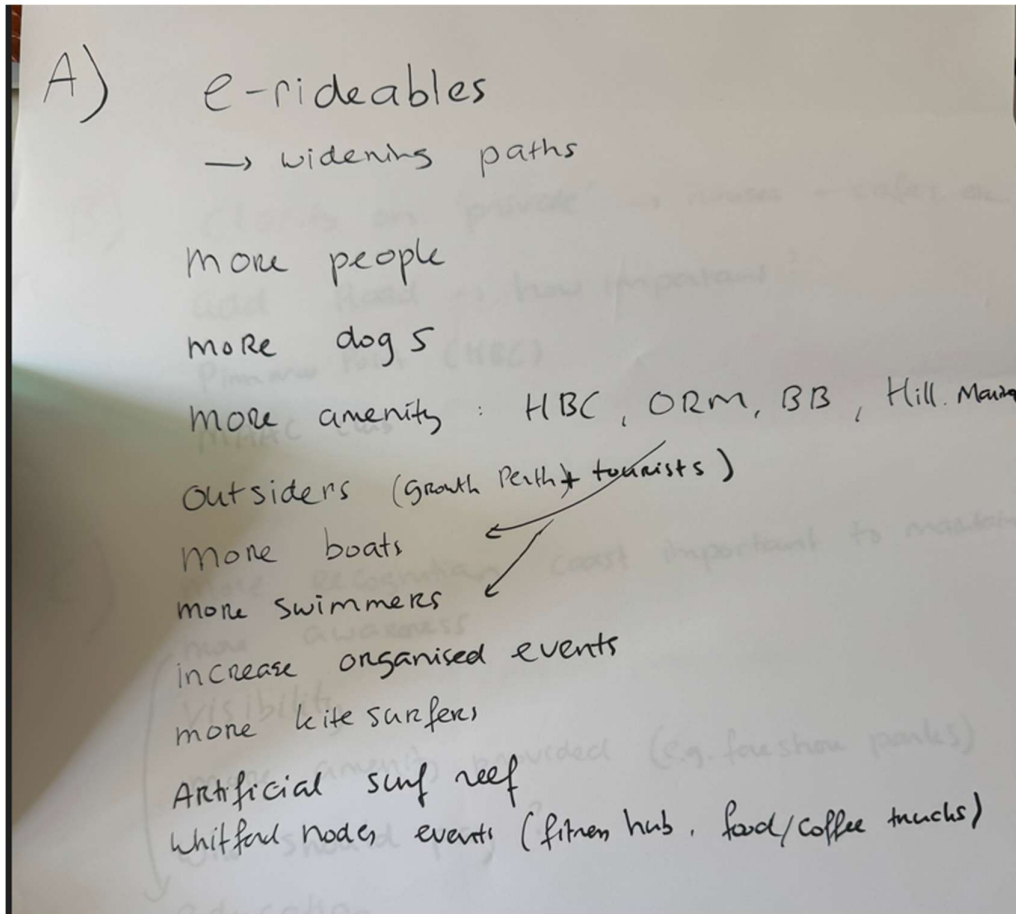 A) e-rideables
→ widening paths
more people
more dogs
more amenity : HBC, ORM, BB, Hill. Marina
outsiders (Growth Perth + tourists)
more boats
more swimmers
increase organised events
more kite surfers
Artificial surf reef
Whitford nodes events (fitness hub, food/coffee trucks)